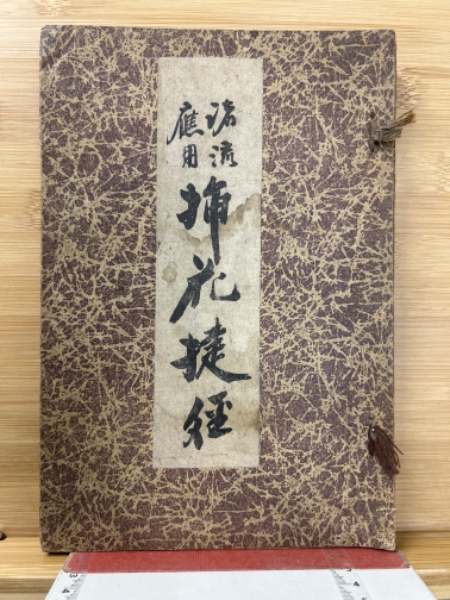 諸流
應用
挿花捷徑